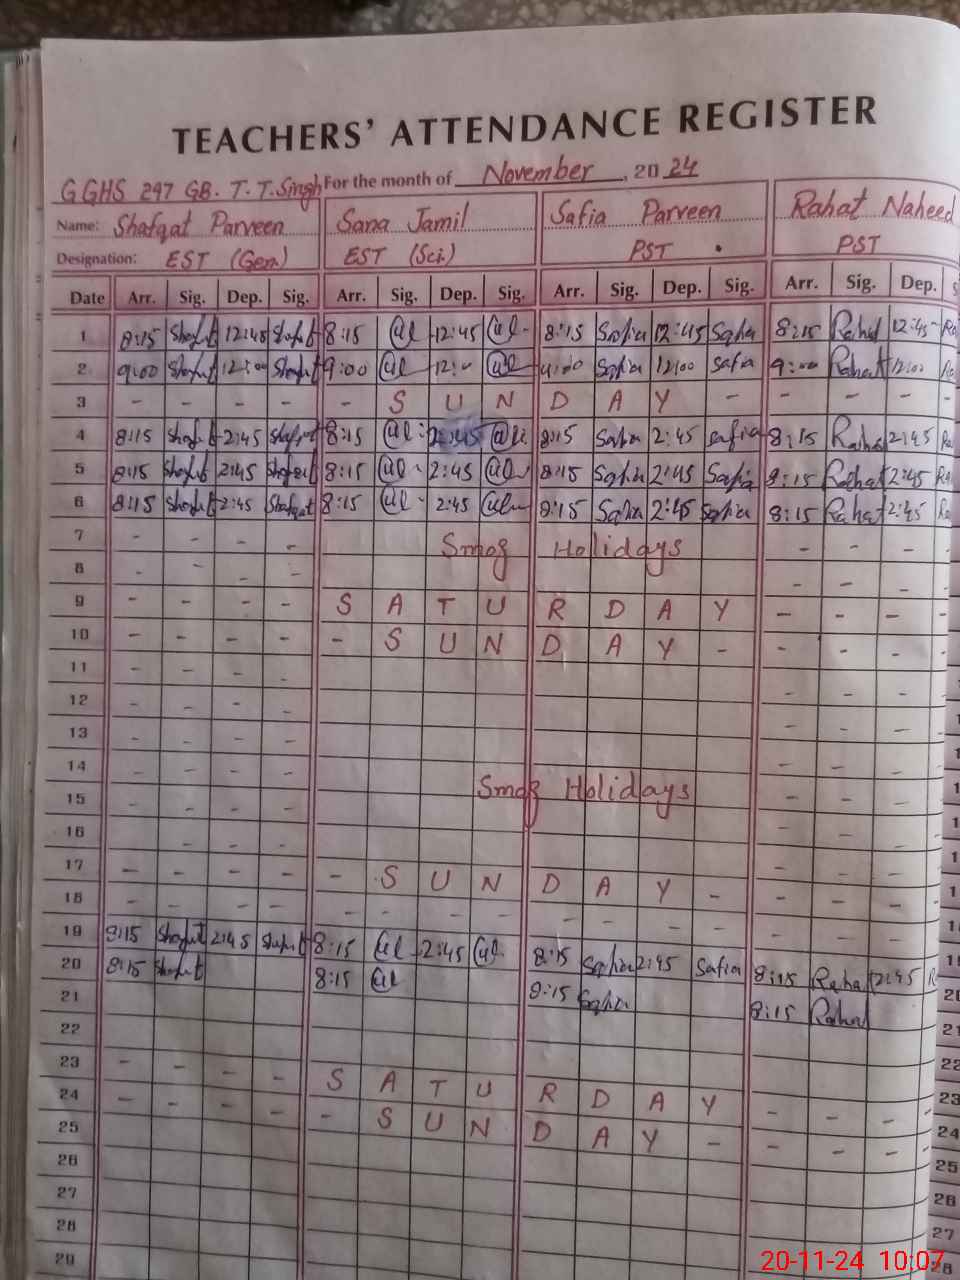 TEACHERS' ATTENDANCE REGISTER
GGHS 297 GB. T.T.Singh For the month of November, 2024
Name: Shafqat Parveen Sana Jamil Safia Parveen Rahat Naheed
Designation: EST (Gen) EST (Sci) PST PST
Date Arr. Sig. Dep. Sig. Arr. Sig. Dep. Sig. Arr. Sig. Dep. Sig. Arr. Sig. Dep. S
1 8:15 Shafqat 12:45 Shafqat 8:15 12:45 8:15 Safia 12:45 Safia 8:15 Rahat 12:45 Ra
2 9:00 Shafqat 12:00 Shafqat 9:00 12:00 9:00 Safia 12:00 Safia 9:00 Rahat 12:00
3 - - - - - S U N D A Y
4 8:15 Shafqat 2:45 Shafqat 8:15 2:45 8:15 Safia 2:45 Safia 8:15 Rahat 2:45 Ra
5 8:15 Shafqat 2:45 Shafqat 8:15 2:45 8:15 Safia 2:45 Safia 8:15 Rahat 2:45 Ra
6 8:15 Shafqat 2:45 Shafqat 8:15 2:45 8:15 Safia 2:45 Safia 8:15 Rahat 2:45 Ra
7 - - - - Smog Holidays - - -
8 - - - - - - -
9 - - - - S A T U R D A Y - - -
10 - - - - - S U N D A Y - - - -
11 - - - - - - -
12 - - - - - - -
13 - - - - - - -
14 - - - - - - -
15 - - - - Smog Holidays - - -
16 - - - - - - -
17 - - - - - S U N D A Y - - - -
18 - - - - - - - - - - - - - - -
19 8:15 Shafqat 2:45 Shafqat 8:15 2:45 8:15 Safia 2:45 Safia 8:15 Rahat 2:45 R
20 8:15 Shafqat 8:15 8:15 Safia 8:15 Rahat
21
22
23 - - - - S A T U R D A Y - - -
24 - - - - - S U N D A Y - - - -
25
26
27
28
29
20-11-24 10:07